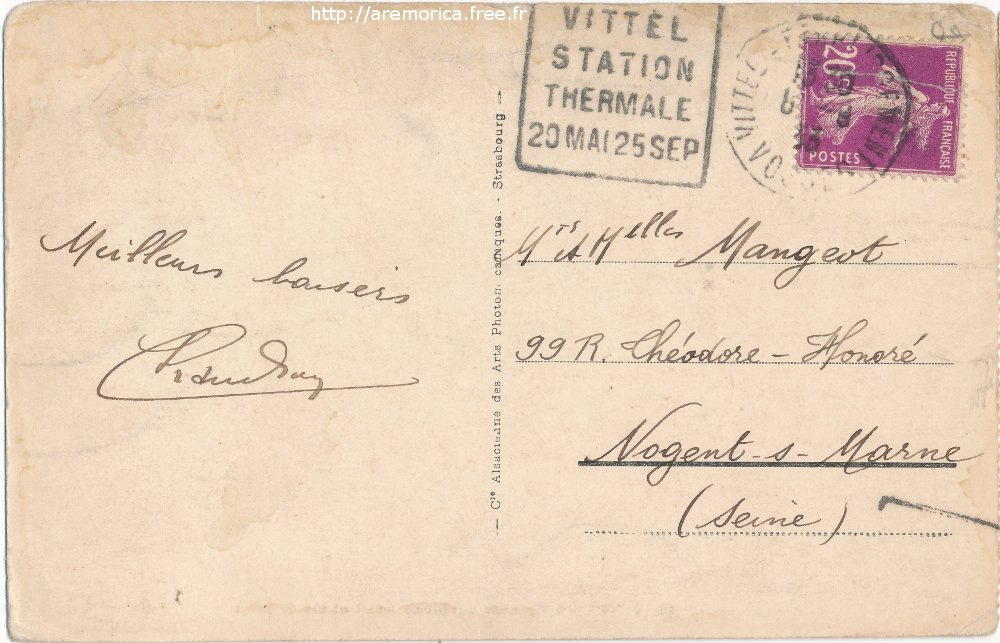 http://aremorica.free.fr
VITTEL
STATION
THERMALE
20 MAI 25 SEP
REPUBLIQUE FRANÇAISE
20c
POSTES
Meilleurs baisers
Cie Alsacienne des Arts Photomécaniques. - Strasbourg
Mrs & Melles Mangeot
99 R. Théodore - Honoré
Nogent-s-Marne
(Seine)